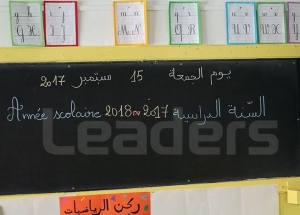 يوم الجمعة 15 سبتمبر 2017
Année scolaire 2018/2017 السّنة الدراسية
Leaders
ركن الرياضيات